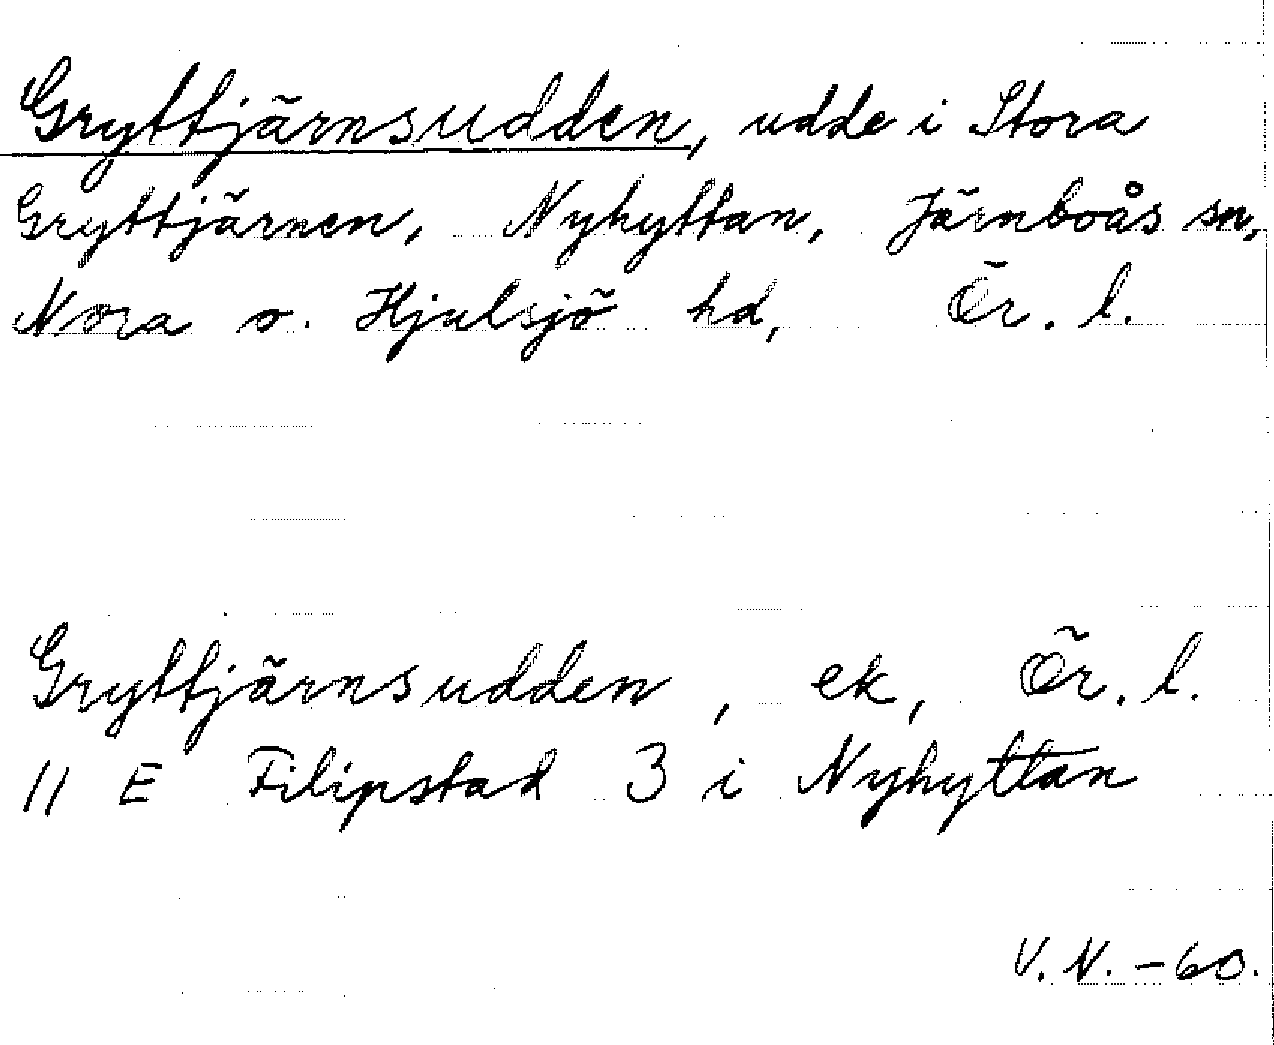 Gryttjärnsudden, udde i Stora
Gryttjärnen, Nyhyttan, Järnboås sn,
Nora o. Hjulsjö hd, Ör. l.
Gryttjärnsudden, ek, Ör. l.
11 E Filipstad 3 i Nyhyttan
V. N. - 60.